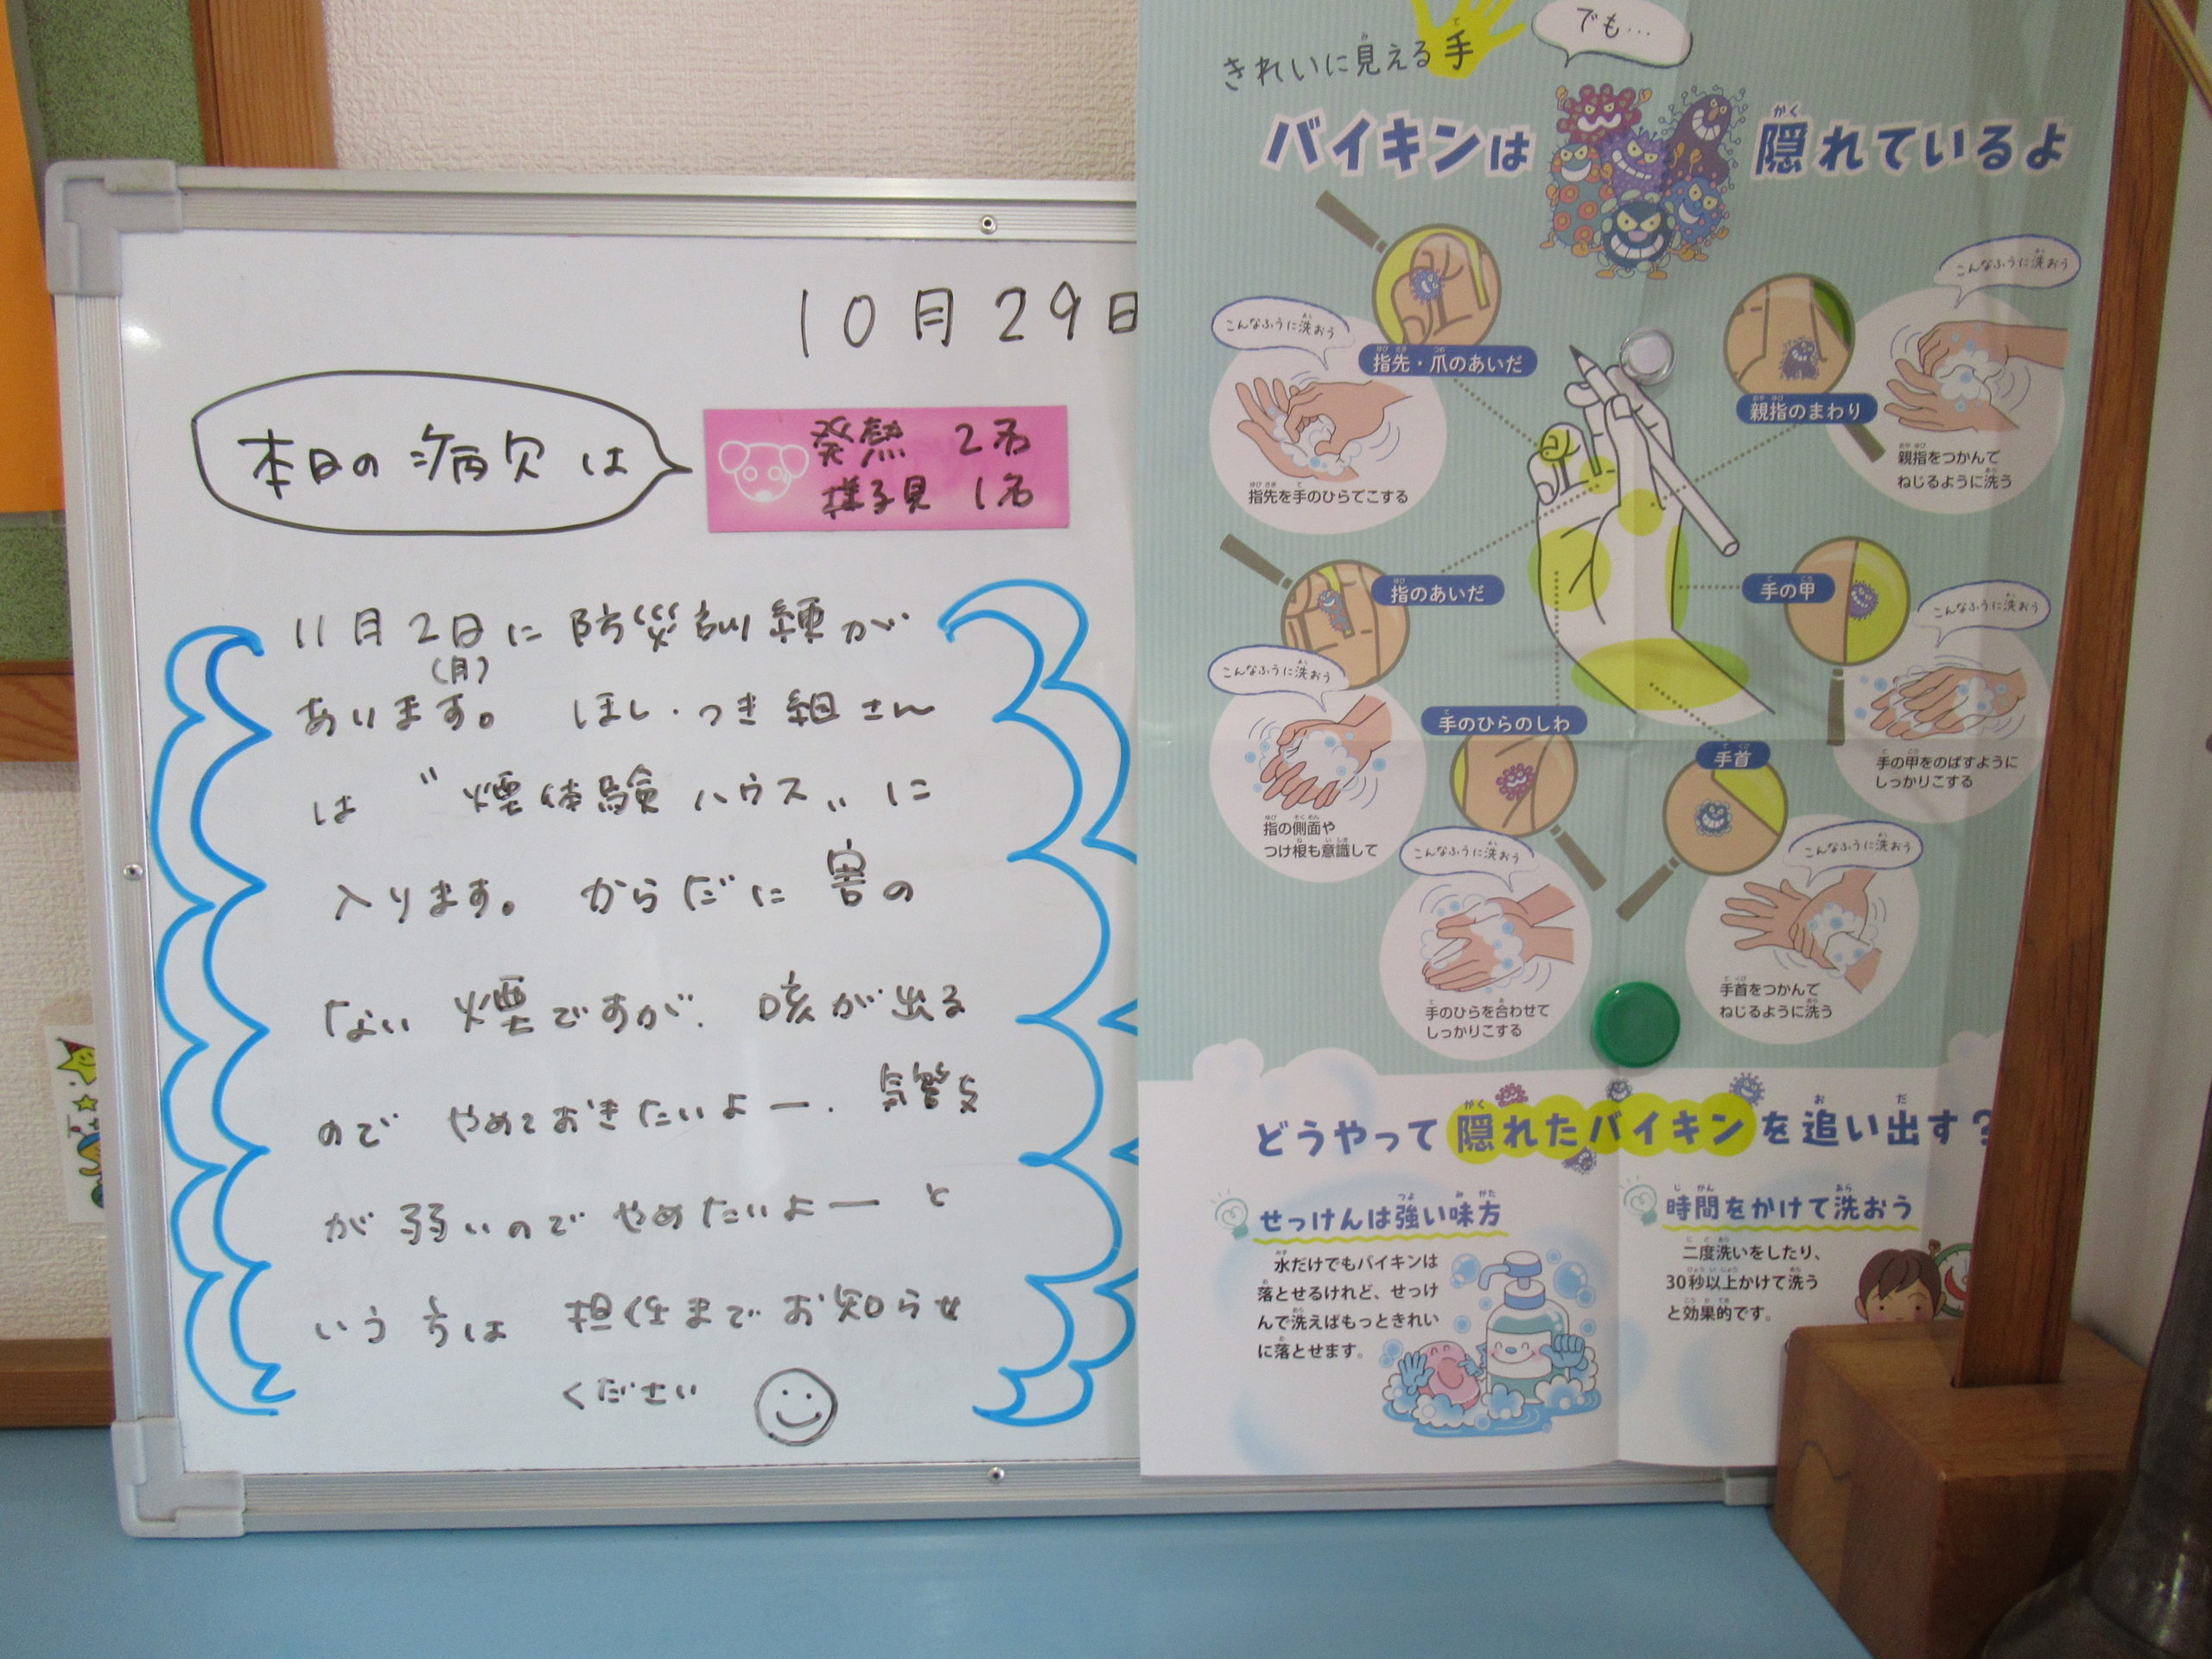 10月29日
本日の病欠は
発熱 2名
様子見 1名
11月2日に防災訓練が
(月)
あります。 ほし・つき組さん
は "煙体験ハウス" に
入ります。 からだに害の
ない煙ですが、咳が出る
ので やめておきたいよー、気管支
が弱いので やめたいよー と
いう方は 担任までお知らせ
ください
でも…
きれいに見える手
て
バイキンは
隠れているよ
かく
こんなふうに洗おう
指先・爪のあいだ
指先を手のひらでこする
こんなふうに洗おう
親指のまわり
親指をつかんで
ねじるように洗う
指のあいだ
こんなふうに洗おう
指の側面や
つけ根も意識して
手の甲
こんなふうに洗おう
手の甲をのばすように
しっかりこする
手のひらのしわ
こんなふうに洗おう
手のひらを合わせて
しっかりこする
手首
こんなふうに洗おう
手首をつかんで
ねじるように洗う
どうやって隠れたバイキンを追い出す?
せっけんは強い味方
水だけでもバイキンは
落とせるけれど、せっけ
んで洗えばもっときれい
に落とせます。
時間をかけて洗おう
二度洗いをしたり、
30秒以上かけて洗う
と効果的です。